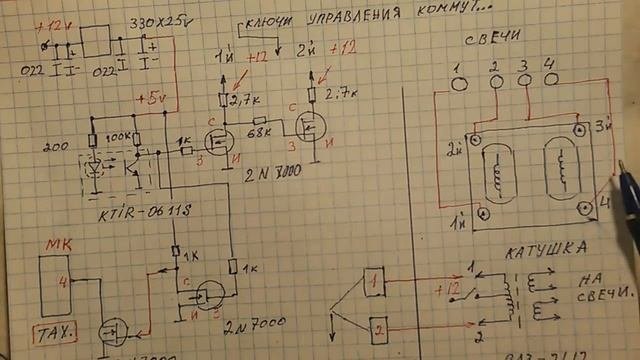 КЛЮЧИ УПРАВЛЕНИЯ КОММУТ...
+12v
330x25v
022
022
+5v
1й
+12
2й
+12
2,7к
2.7к
200
100к
1к
с
з
и
68к
с
з
и
2N 7000
KTIR-0611S
1к
1к
с
и
з
2N7000
МК
4
ТАХ.
СВЕЧИ
1
2
3
4
2й
3й
1й
4
КАТУШКА
1
2
+12
1
2
НА
СВЕЧИ.